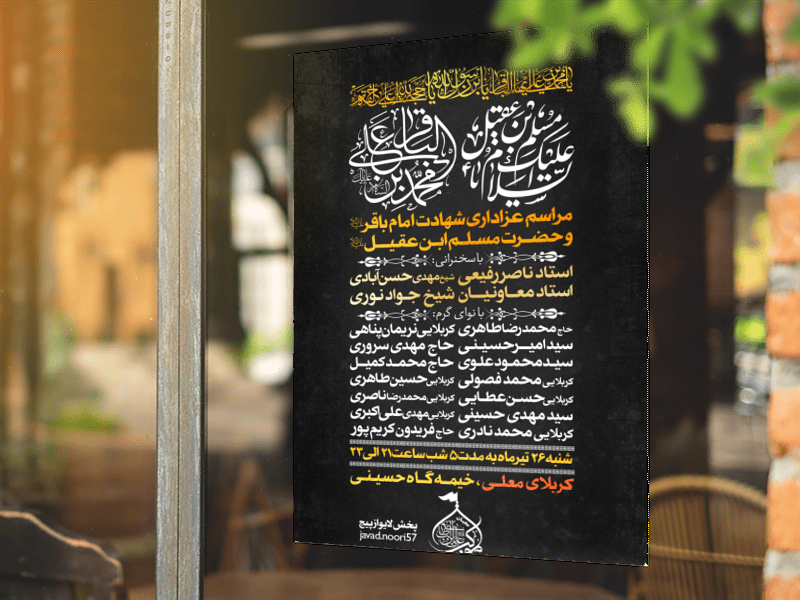 یا محمد بن علی ایها الباقر یابن رسول الله یا حجة الله علی خلقه
السلام علیک یا مسلم بن عقیل
محمد بن علی الباقر
مراسم عزاداری شهادت امام باقر
و حضرت مسلم ابن عقیل
با سخنرانی:
استاد ناصر رفیعی شیخ مهدی حسن آبادی
استاد معاونیان شیخ جواد نوری
با نوای گرم:
حاج محمدرضا طاهری کربلایی نریمان پناهی
سید امیر حسینی حاج مهدی سروری
سید محمود علوی حاج محمد کمیل
کربلایی محمد فصولی کربلایی حسین طاهری
کربلایی حسن عطایی کربلایی محمدرضا ناصری
سید مهدی حسینی کربلایی مهدی علی اکبری
کربلایی محمد نادری حاج فریدون کریم پور
شنبه ۲۶ تیرماه به مدت ۵ شب ساعت ۲۱ الی ۲۳
کربلای معلی، خیمه گاه حسینی
پخش لایو از پیج
javad.noori57